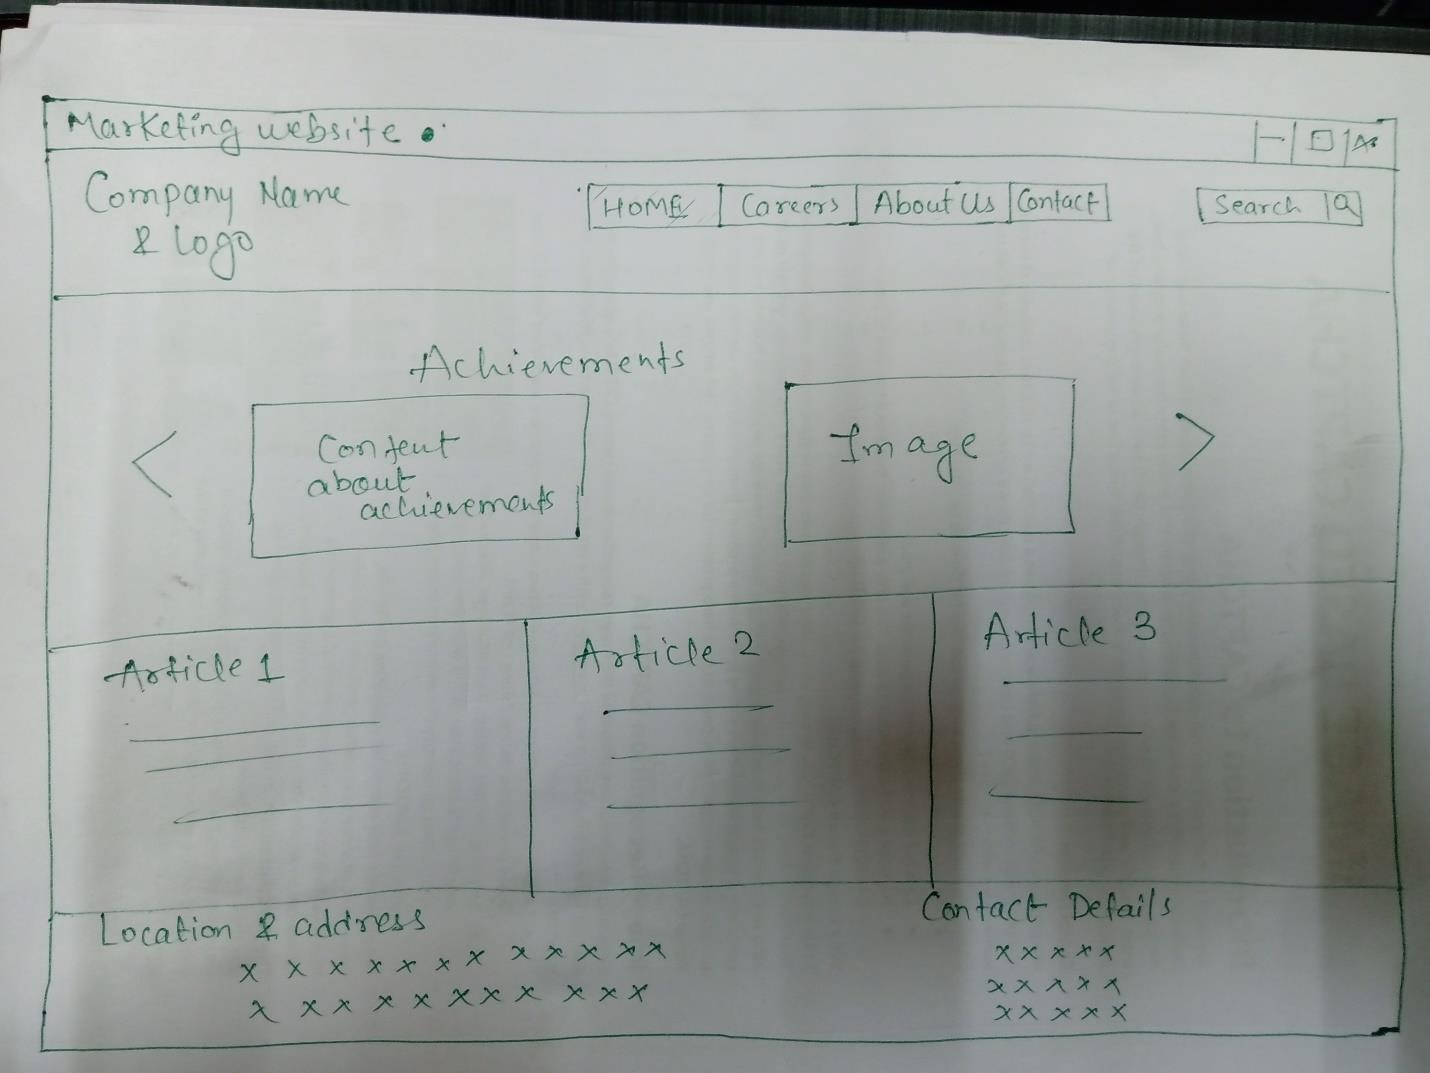 Marketing website
Company Name
& logo
HOME Careers About Us Contact
Search
Achievements
Content
about
achievements
Image
Article 1
Article 2
Article 3
Location & address
x x x x x x x x x x x x
x x x x x x x x x x x
Contact Details
x x x x x
x x x x x
x x x x x